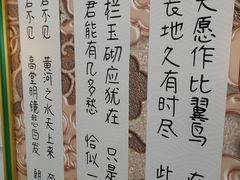 天愿作比翼鸟 在
长地久有时尽 此
栏玉砌应犹在 只是
君能有几多愁 恰似一
君不见 黄河之水天上来
不见 高堂明镜悲白发 朝